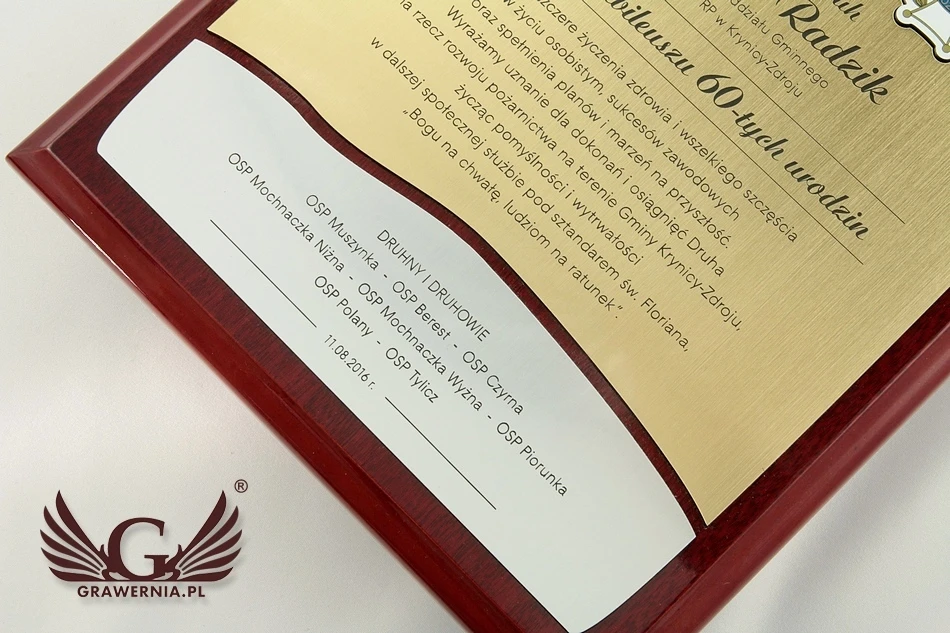 uh
Radzik
ddziału Gminnego
RP w Krynicy-Zdroju
bileuszu 60-tych urodzin
szczere życzenia zdrowia i wszelkiego szczęścia
w życiu osobistym, sukcesów zawodowych
oraz spełnienia planów i marzeń na przyszłość.
Wyrażamy uznanie dla dokonań i osiągnięć Druha
na rzecz rozwoju pożarnictwa na terenie Gminy Krynicy-Zdroju,
życząc pomyślności i wytrwałości
w dalszej społecznej służbie pod sztandarem św. Floriana,
„Bogu na chwałę, ludziom na ratunek”.
DRUHNY I DRUHOWIE
OSP Muszynka - OSP Berest - OSP Czyrna
OSP Mochnaczka Niżna - OSP Mochnaczka Wyżna - OSP Piorunka
OSP Polany - OSP Tylicz
11.08.2016 r.
G ®
GRAWERNIA.PL